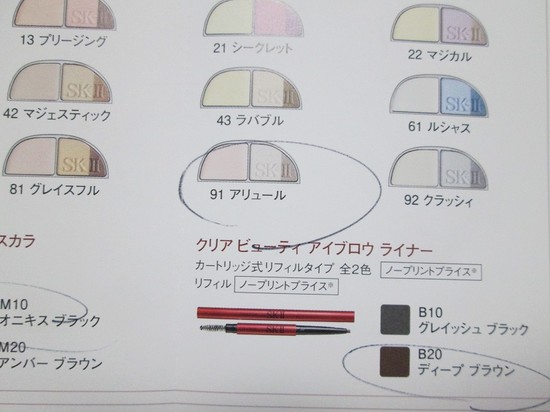 13 プリージング
21 シークレット
22 マジカル
SK-II
42 マジェスティック
43 ラバブル
61 ルシャス
SK-II
81 グレイスフル
91 アリュール
92 クラッシィ
スカラ
M10
オニキス ブラック
M20
アンバー ブラウン
クリア ビューティ アイブロウ ライナー
カートリッジ式リフィルタイプ 全2色 ノープリントプライス®
リフィル ノープリントプライス®
SK-II
SK-II
B10
グレイッシュ ブラック
B20
ディープ ブラウン